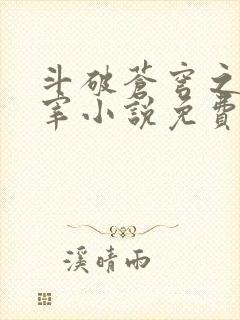 斗破蒼穹之
宰小說免費
溪晴雨